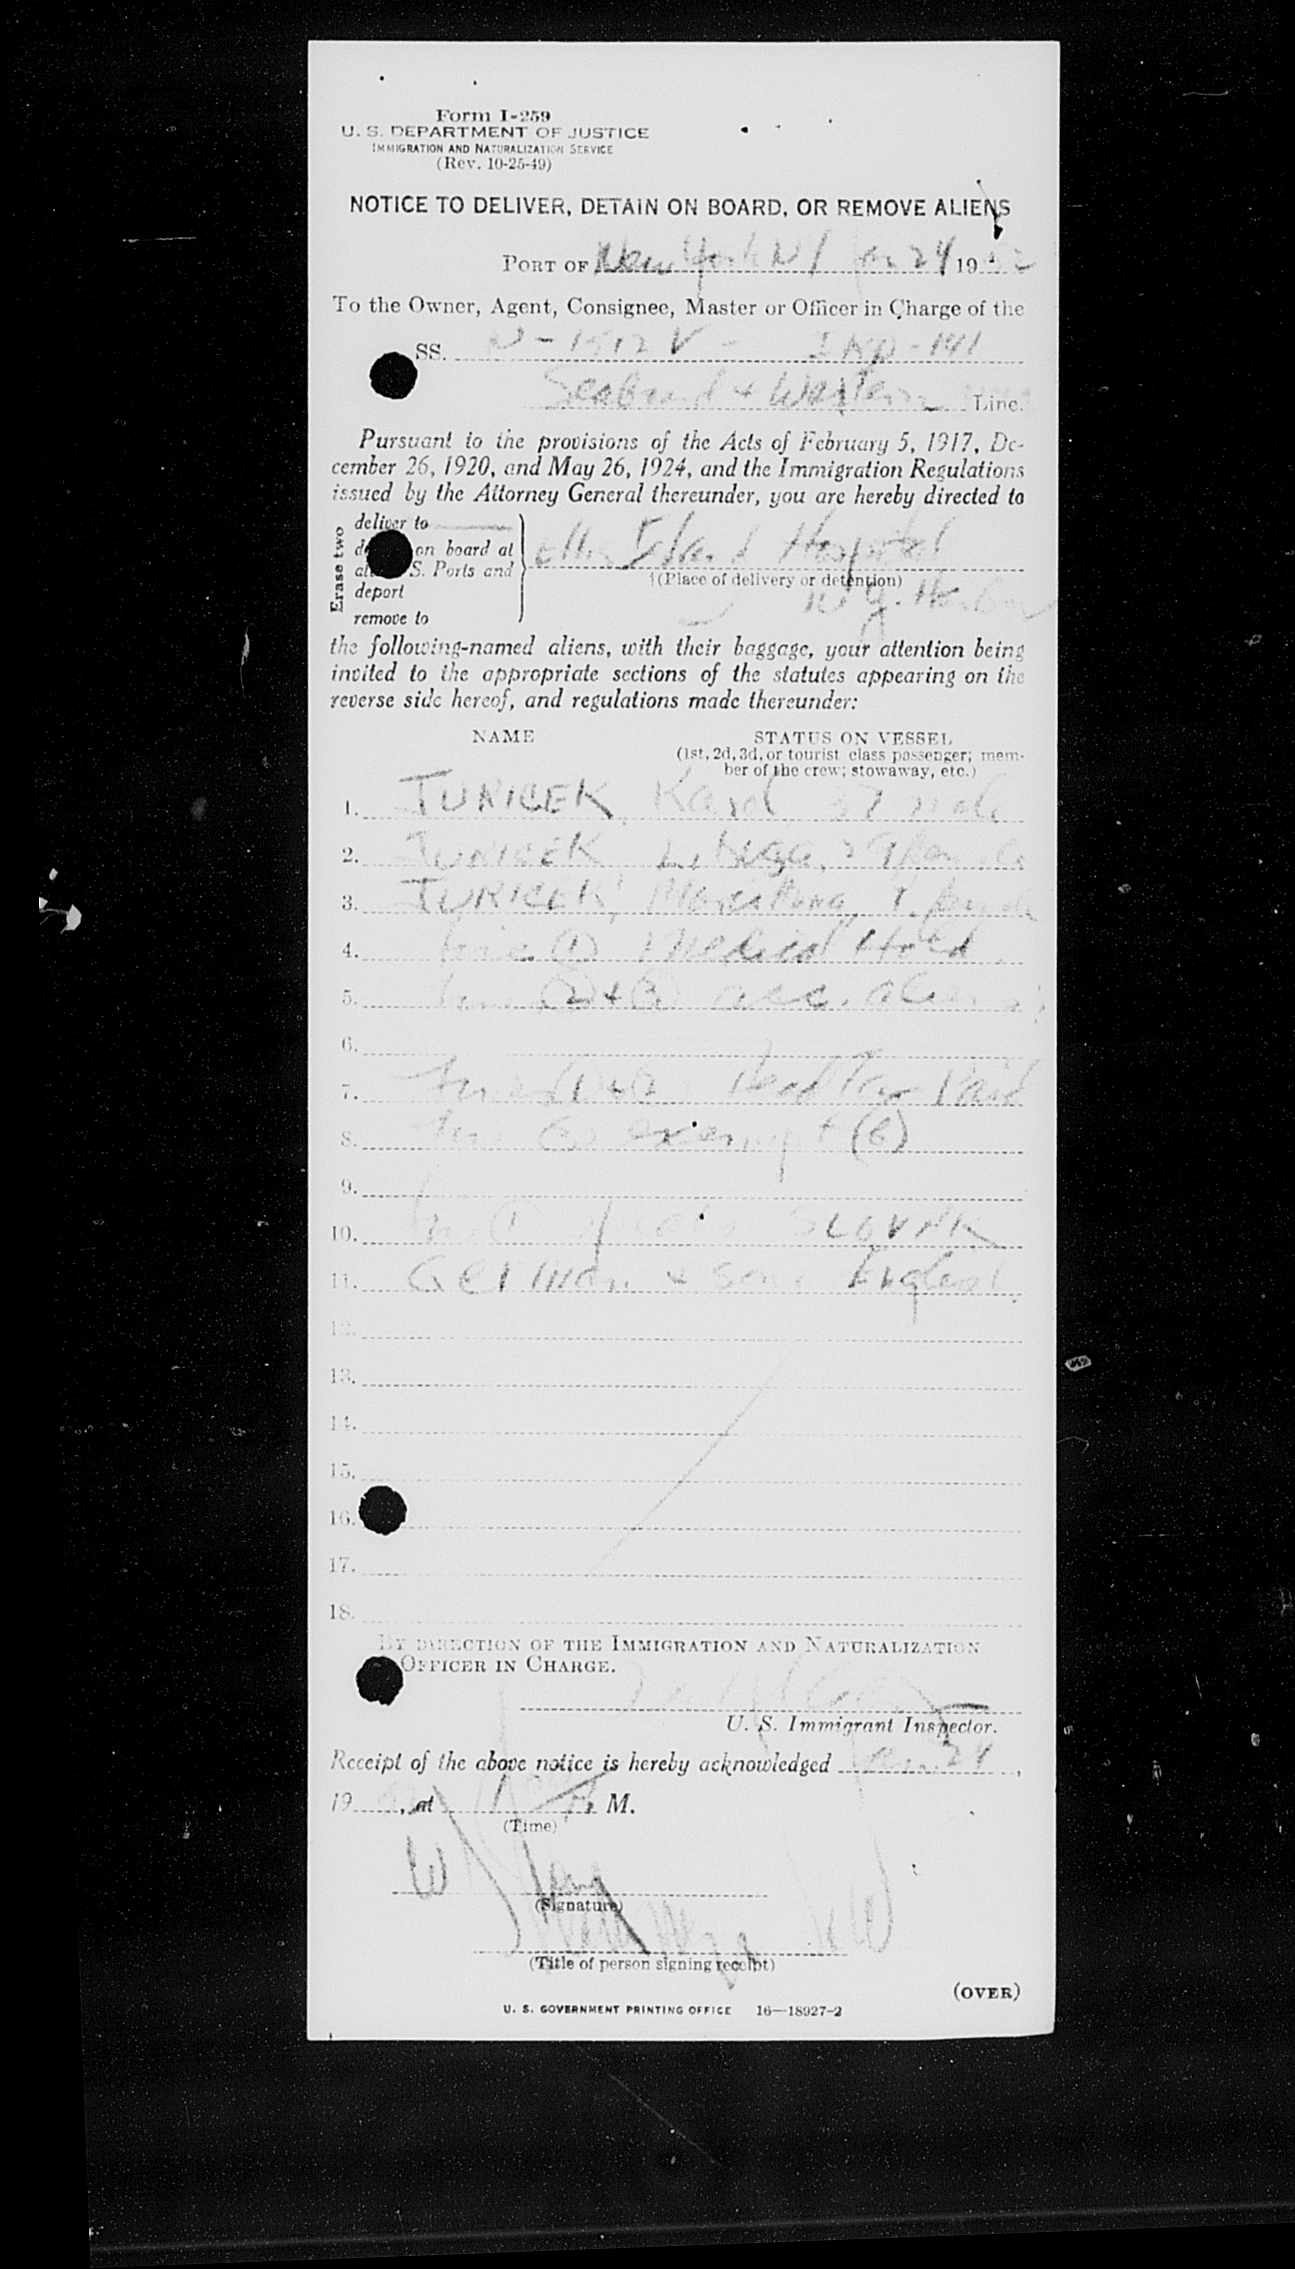 Form I-259
U. S. DEPARTMENT OF JUSTICE
IMMIGRATION AND NATURALIZATION SERVICE
(Rev. 10-25-49)
NOTICE TO DELIVER, DETAIN ON BOARD, OR REMOVE ALIENS
PORT OF New York N Y Jan 24 1952
To the Owner, Agent, Consignee, Master or Officer in Charge of the
SS. N-1512 V -
Seaboard + Western Line.
Pursuant to the provisions of the Acts of February 5, 1917, De-
cember 26, 1920, and May 26, 1924, and the Immigration Regulations
issued by the Attorney General thereunder, you are hereby directed to
Erase two
deliver to
on board at
S. Ports and
deport
remove to
Ellis Island Hospital
†(Place of delivery or detention)
N.Y. Harbor
the following-named aliens, with their baggage, your attention being
invited to the appropriate sections of the statutes appearing on the
reverse side hereof, and regulations made thereunder:
NAME STATUS ON VESSEL
(1st, 2d, 3d, or tourist class passenger; mem-
ber of the crew; stowaway, etc.)
1. JURICEK, Karol 37 male
2. JURICEK female
3. JURICEK, 1. female
4. line (1) Medical Hold
5. line (2) + (3) acc. aliens
6.
7. Head Tax Paid
8. exempt (6)
9.
10. (1) speaks SLOVAK
11. German + some English
12.
13.
14.
15.
16.
17.
18.
BY DIRECTION OF THE IMMIGRATION AND NATURALIZATION
OFFICER IN CHARGE.
U. S. Immigrant Inspector.
Receipt of the above notice is hereby acknowledged Jan. 24,
19 , at M.
(Time)
(Signature)
(Title of person signing receipt)
(OVER)
U. S. GOVERNMENT PRINTING OFFICE 16—18927-2